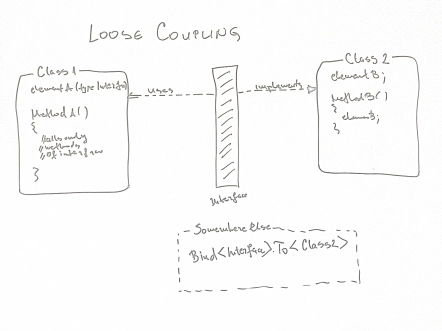 LOOSE COUPLING
Class 1
elementA (type Interface)
MethodA()
{
//calls only
//methods
//of interface
}
uses
Interface
implements
Class 2
elementB;
MethodB()
{
elementB;
}
Somewhere Else
Bind<Interface>.To<Class2>